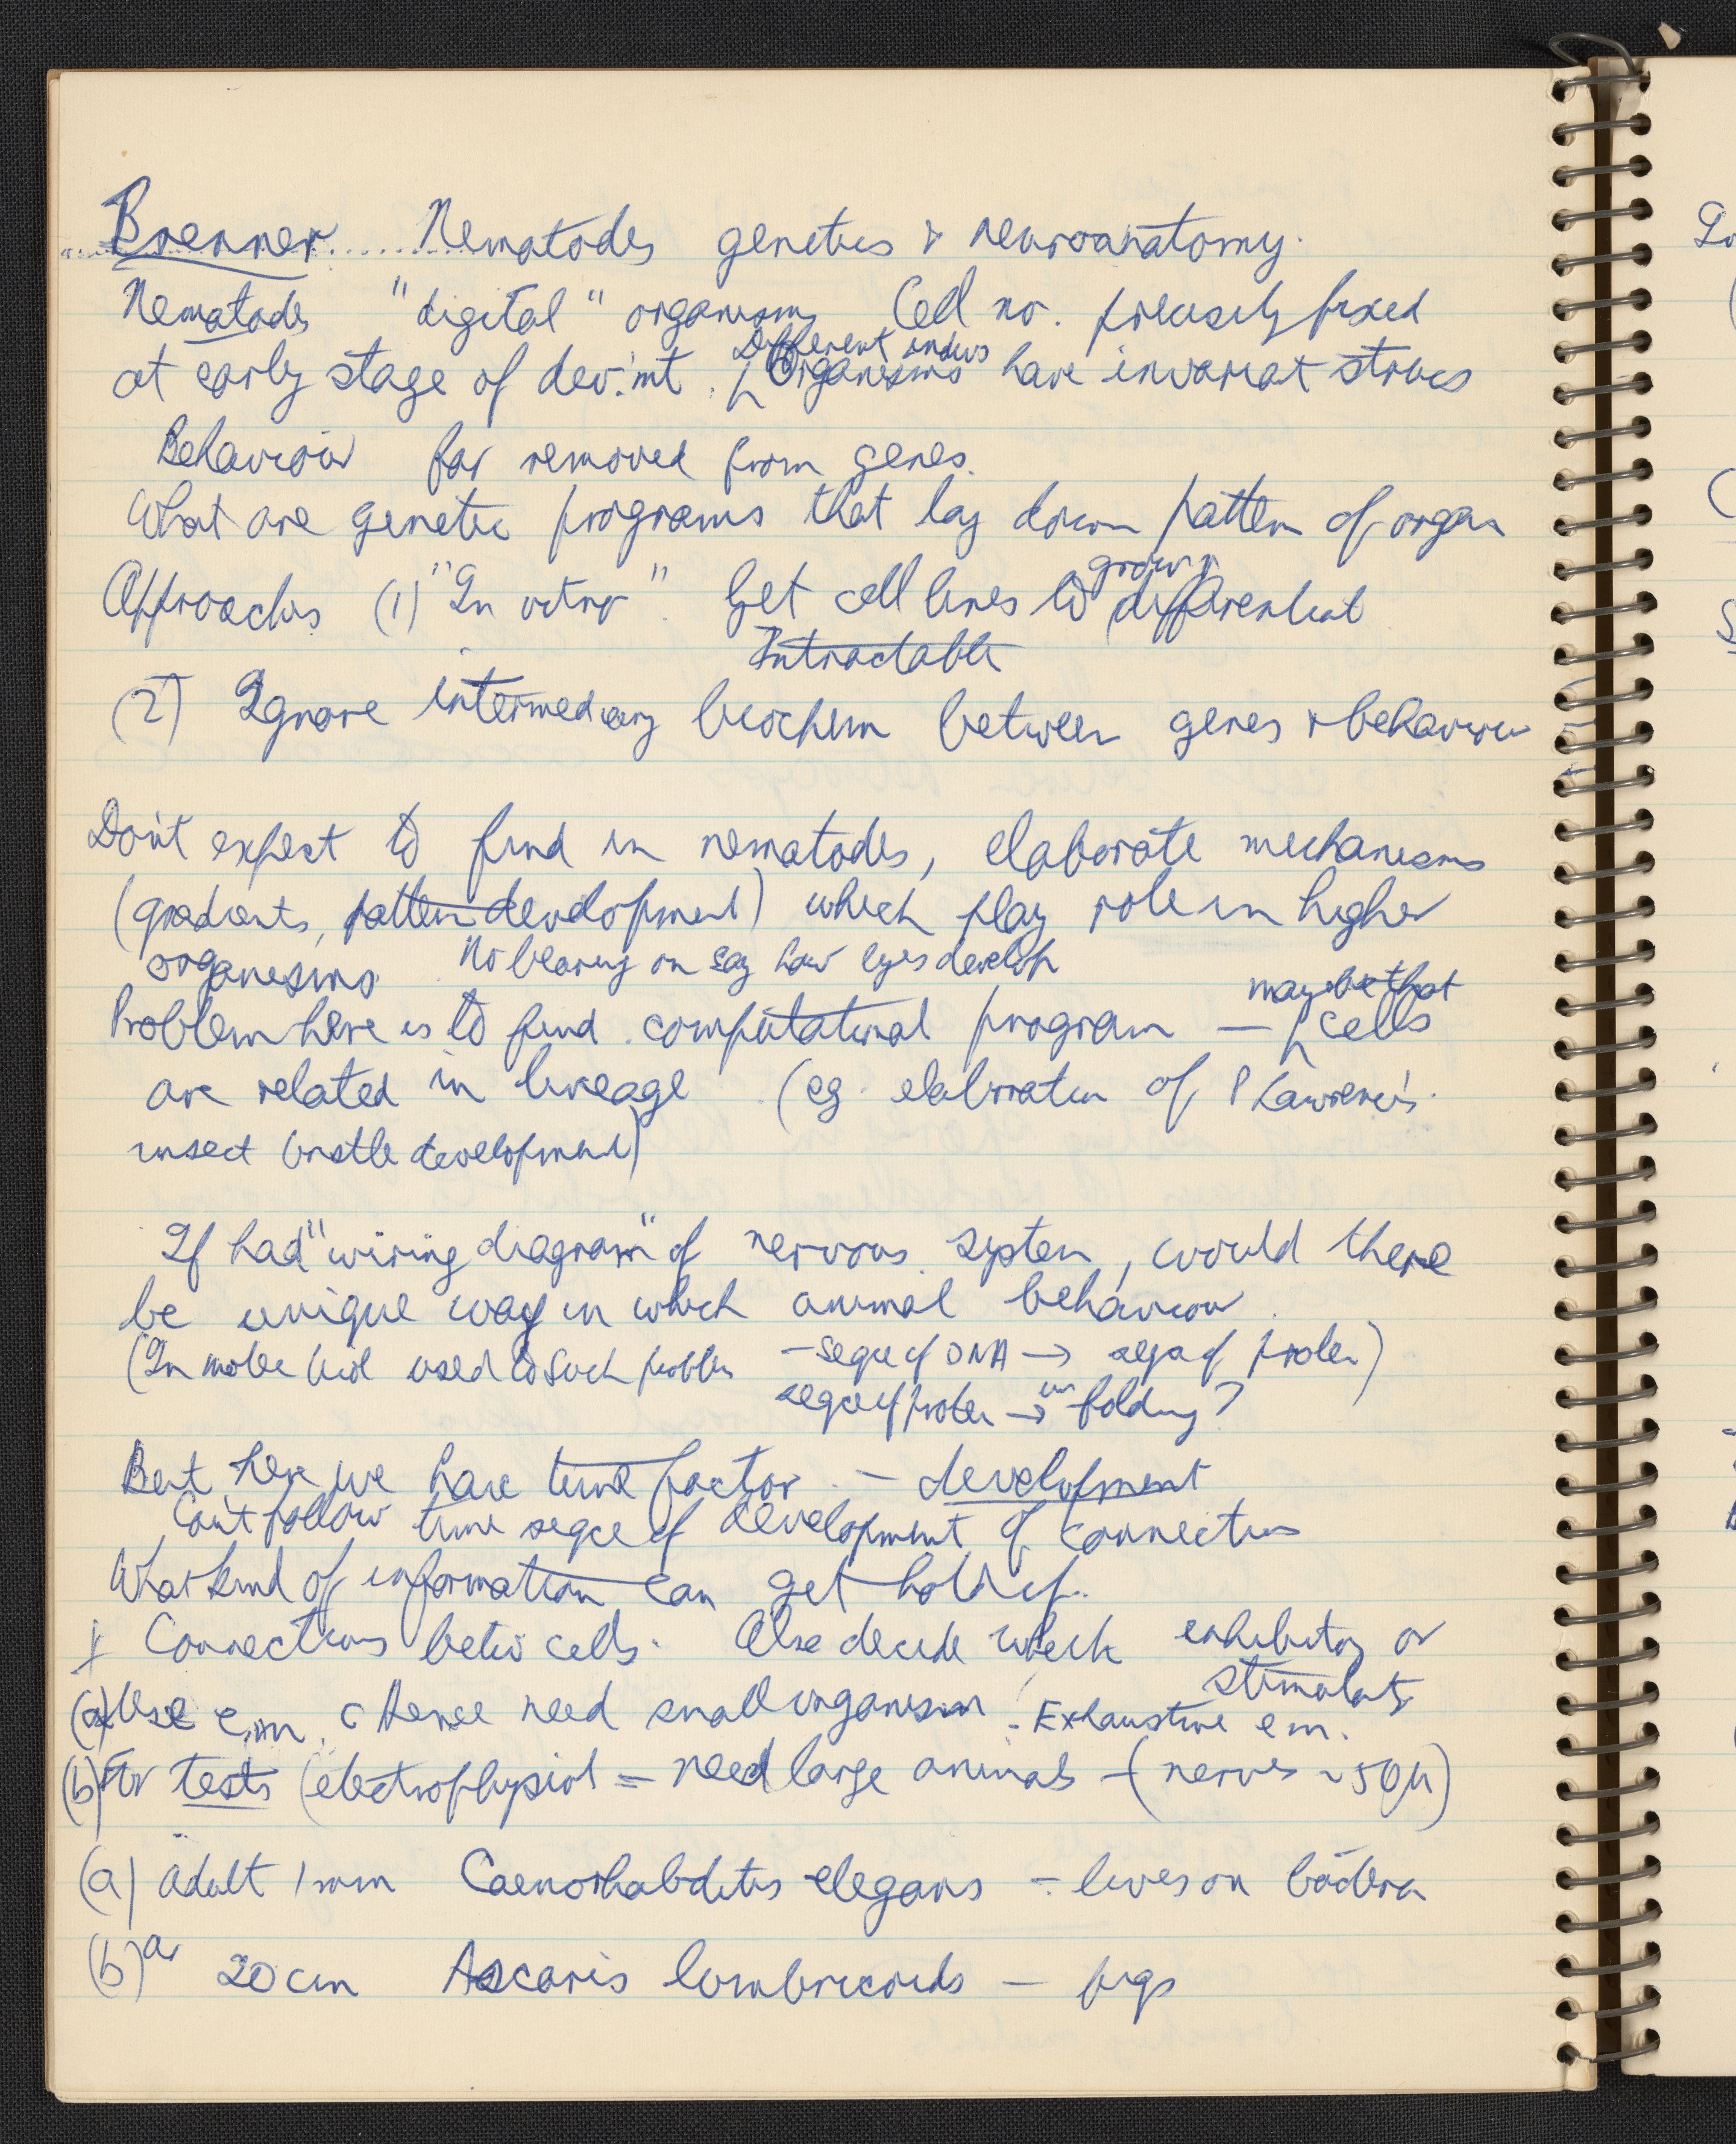 Brenner Nematodes genetics & neuroanatomy.
Nematodes "digital" organisms Cell no. precisely fixed
Different
at early stage of dev:mt. Organisms have invariant strucs
Behaviour far removed from genes.
What are genetic programs that lay down pattern of organ
grown
Approaches (1) "In vitro". Get cell lines to differentiate
Intractable
(2) Ignore intermediary biochem between genes & behaviour
Don't expect to find in nematodes, elaborate mechanisms
(gradients, pattern development) which play role in higher
organisms. No bearing on say how eyes develop
may be that
Problem here is to find computational program — cells
are related in lineage (eg. elaboration of P Lawrence's
insect bristle development)
If had "wiring diagram" of nervous system, would there
be unique way in which animal behaviour.
(In molec biol used to such problem - seqce of DNA → seqce of protein)
seqce of protein → folding?
But here we have time factor. - development
Can't follow time seqce of development of connections
What kind of information can get hold of.
I Connections betw cells. Also decide which inhibitory or
stimulatory
(a) Use e.m. Hence need small organism. - Exhaustive e m.
(b) For tests (electrophysiol = need large animals - (nerves ~50μ)
(a) adult 1 mm Caenorhabditis elegans - lives on bacteria
(b) 20 cm Ascaris lumbricoids - pigs